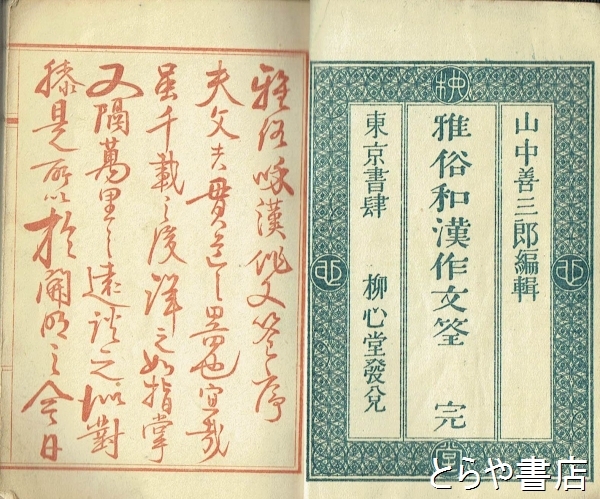 山中善三郎編輯
雅俗和漢作文筌 完
東京書肆 柳心堂發兌
柳
心
心
堂
雅俗咊漢作文筌序
夫文夫貫道之器也宜哉
虽千載之後譯之如指掌
又隔萬里之遠談之似對
膝是所以於開明之今日
とらや書店